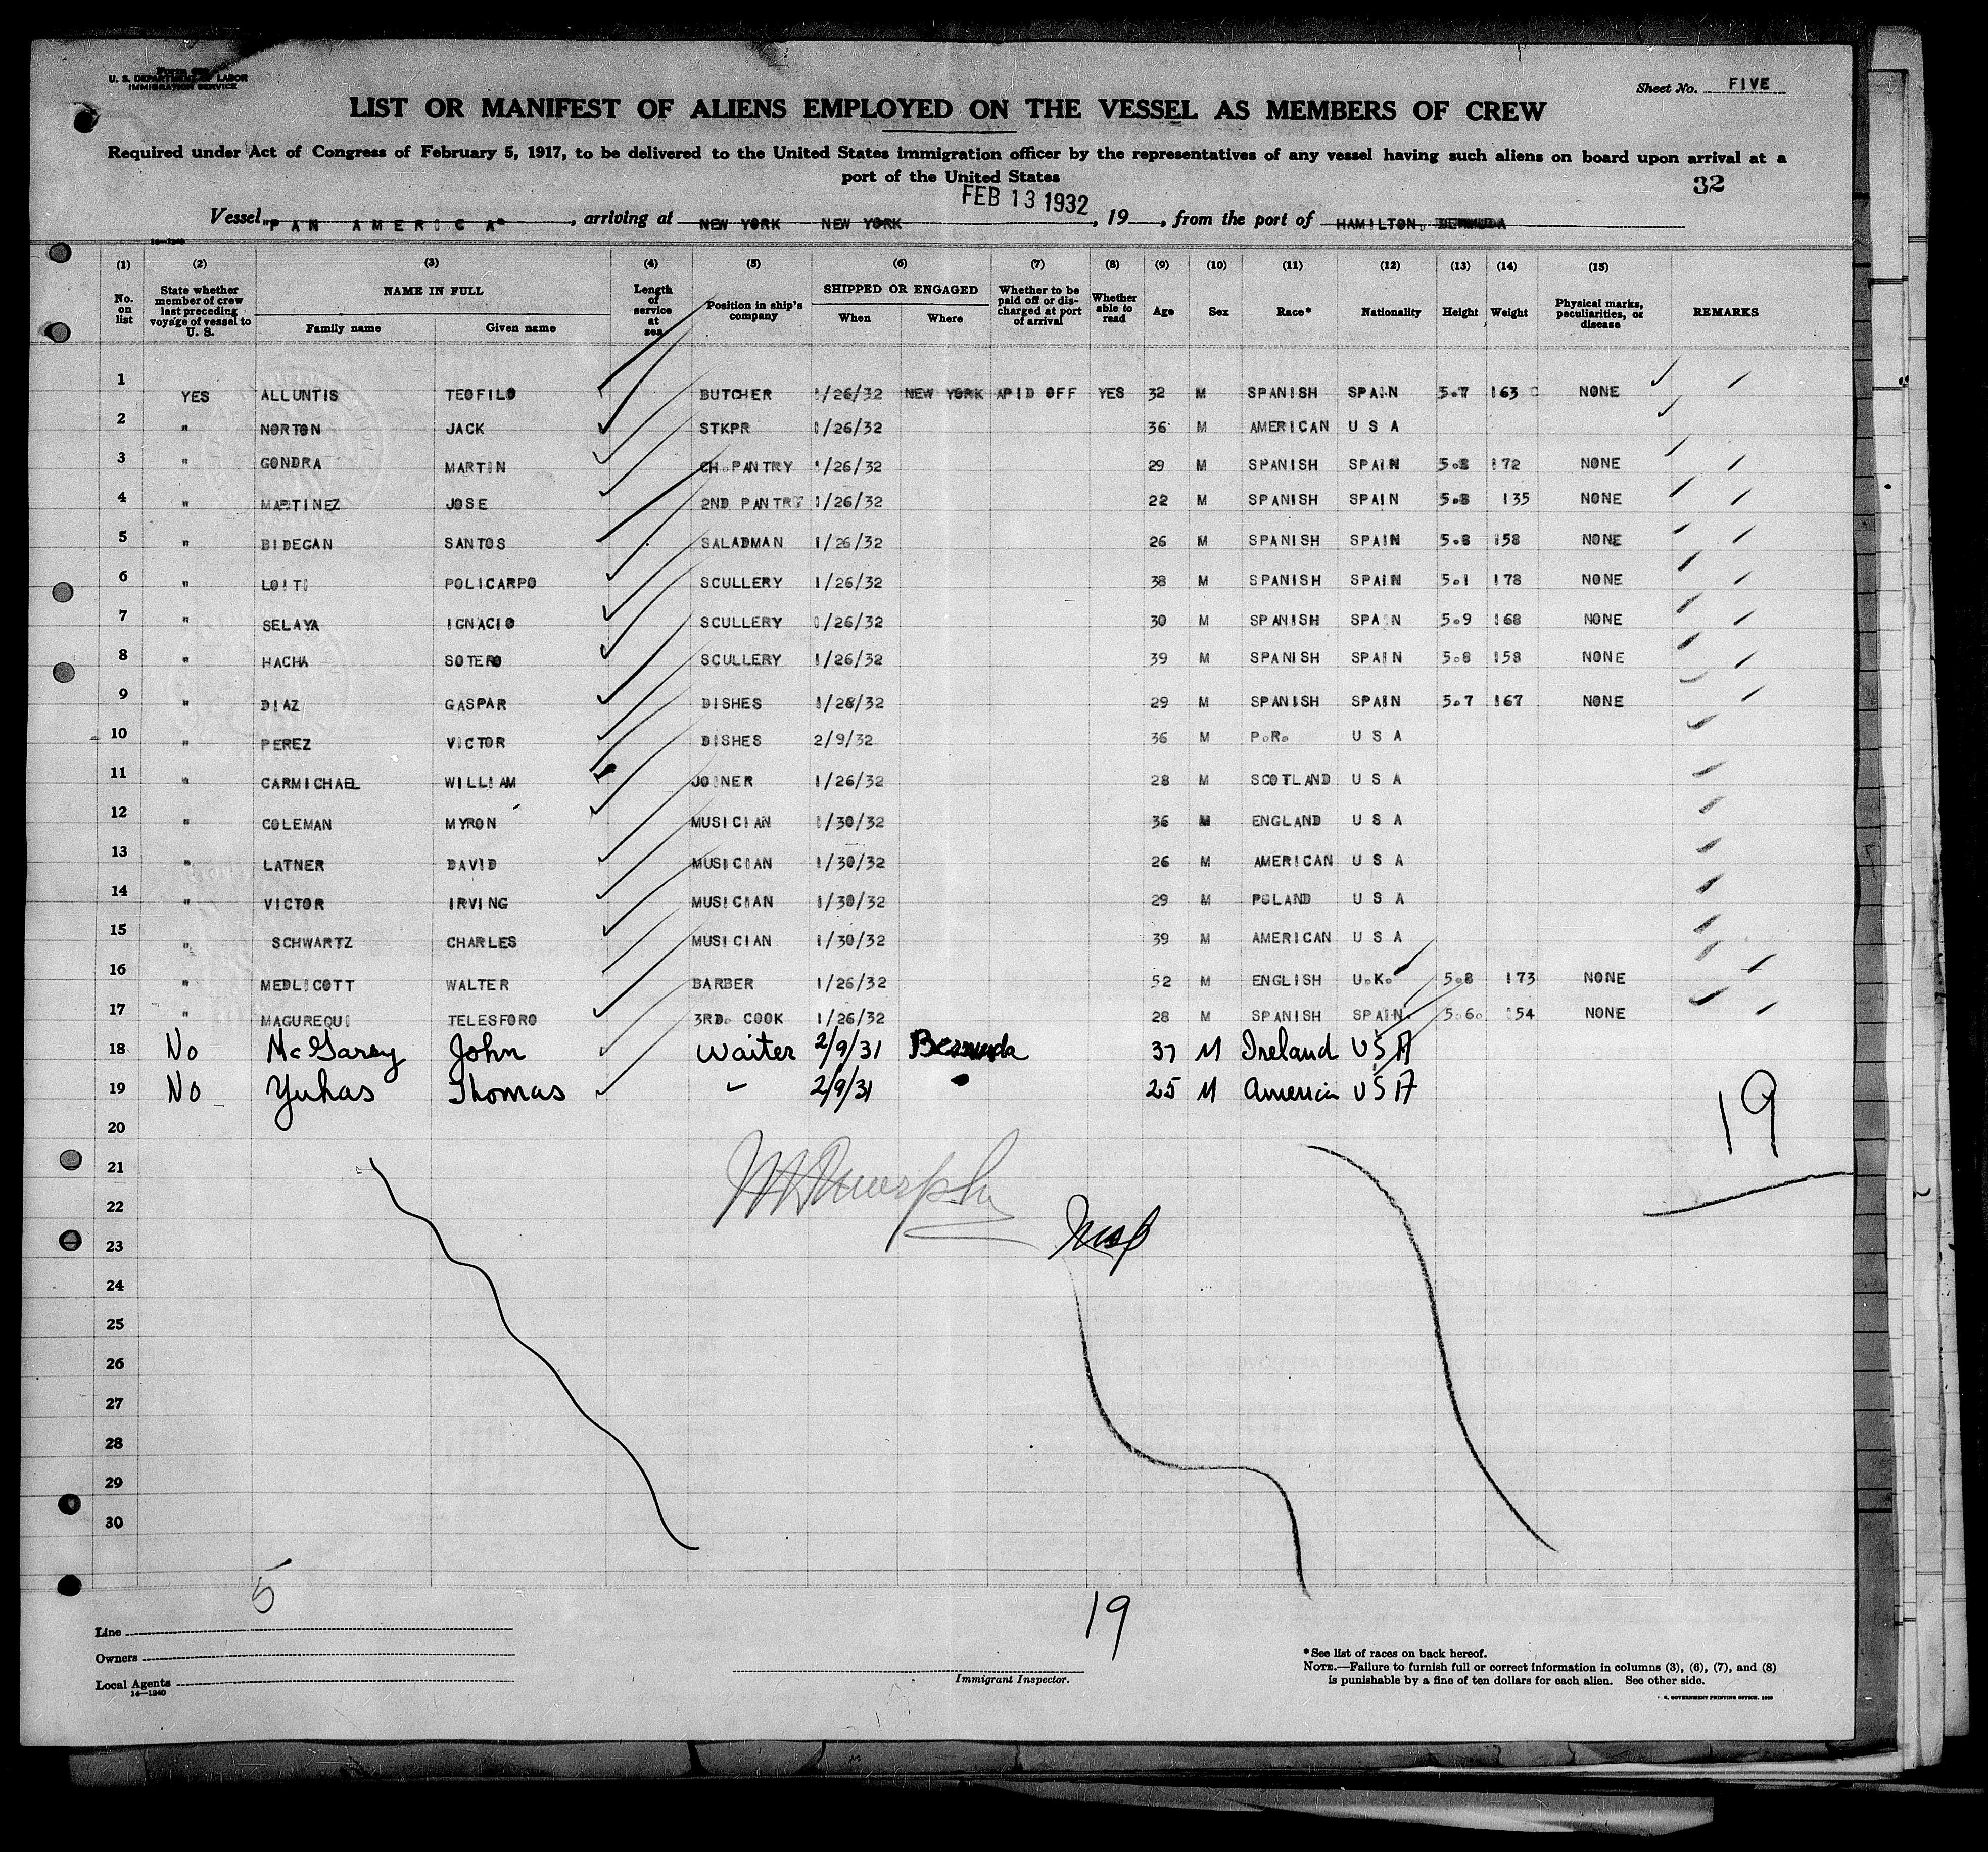 U. S. DEPARTMENT OF LABOR
IMMIGRATION SERVICE
Sheet No. FIVE
LIST OR MANIFEST OF ALIENS EMPLOYED ON THE VESSEL AS MEMBERS OF CREW
Required under Act of Congress of February 5, 1917, to be delivered to the United States immigration officer by the representatives of any vessel having such aliens on board upon arrival at a
port of the United States
32
FEB 13 1932
Vessel "PAN AMERICA", arriving at NEW YORK NEW YORK, 19, from the port of HAMILTON, BERMUDA
14—1240
(1) (2) (3) (4) (5) (6) (7) (8) (9) (10) (11) (12) (13) (14) (15)
No. on list State whether member of crew last preceding voyage of vessel to U. S. NAME IN FULL Family name Given name Length of service at sea Position in ship's company SHIPPED OR ENGAGED When Where Whether to be paid off or discharged at port of arrival Whether able to read Age Sex Race* Nationality Height Weight Physical marks, peculiarities, or disease REMARKS
1 YES ALLUNTIS TEOFILO BUTCHER 1/26/32 NEW YORK APID OFF YES 32 M SPANISH SPAIN 5.7 163 NONE
2 " NORTON JACK STKPR 1/26/32 36 M AMERICAN U S A
3 " GONDRA MARTIN CH.PANTRY 1/26/32 29 M SPANISH SPAIN 172 NONE
4 " MARTINEZ JOSE 2ND PANTRY 1/26/32 22 M SPANISH SPAIN 5.8 135 NONE
5 " BIDEGAN SANTOS SALADMAN 1/26/32 26 M SPANISH SPAIN 5.8 158 NONE
6 " LOITI POLICARPO SCULLERY 1/26/32 38 M SPANISH SPAIN 5.1 178 NONE
7 " SELAYA IGNACIO SCULLERY 1/26/32 30 M SPANISH SPAIN 5.9 168 NONE
8 " HACHA SOTERO SCULLERY 1/26/32 39 M SPANISH SPAIN 5.8 158 NONE
9 " DIAZ GASPAR DISHES 1/26/32 29 M SPANISH SPAIN 5.7 167 NONE
10 " PEREZ VICTOR DISHES 2/9/32 36 M P.R. U S A
11 " CARMICHAEL WILLIAM JOINER 1/26/32 28 M SCOTLAND U S A
12 " COLEMAN MYRON MUSICIAN 1/30/32 36 M ENGLAND U S A
13 " LATNER DAVID MUSICIAN 1/30/32 26 M AMERICAN U S A
14 " VICTOR IRVING MUSICIAN 1/30/32 29 M POLAND U S A
15 " SCHWARTZ CHARLES MUSICIAN 1/30/32 39 M AMERICAN U S A
16 " MEDLICOTT WALTER BARBER 1/26/32 52 M ENGLISH U.K. 5.8 173 NONE
17 " MAGUREQUI TELESFORO 3RD. COOK 1/26/32 28 M SPANISH SPAIN. 5.6. 154 NONE
18 No McGarey John Waiter 2/9/31 Bermuda 37 M Ireland USA
19 No Yuhas Thomas " 2/9/31 " 25 M America USA
19
20
21
22
23
24
25
26
27
28
29
30
5
19
Line
Owners
Local Agents
14—1240
Immigrant Inspector.
*See list of races on back hereof.
NOTE.—Failure to furnish full or correct information in columns (3), (6), (7), and (8)
is punishable by a fine of ten dollars for each alien. See other side.